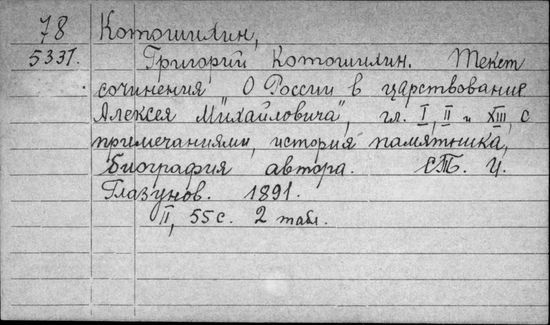 78 Котошихин,
5331. Григорий Котошихин. Текст
сочинения „О России в царствование
Алексея Михайловича", гл. I, II и XIII, с
примечаниями, история памятника,
биография автора. СПб. И.
Глазунов. 1891.
II, 55 с. 2 табл.